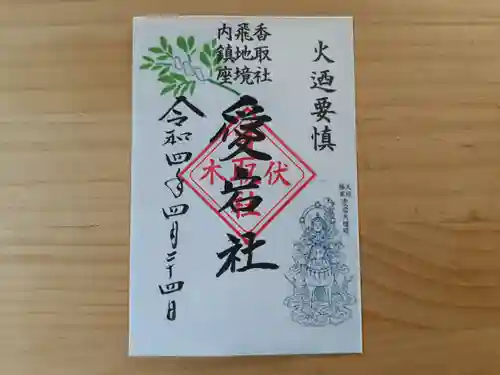 火迺要慎
香取社
飛地境
内鎮座
愛宕社
伏木
香取社
令和四年四月二十四日